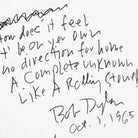 How does it feel
t' be on your own
no direction for home
A Complete unknown
Like A Rollin Stone
Bob Dylan
Oct. 1, 1965